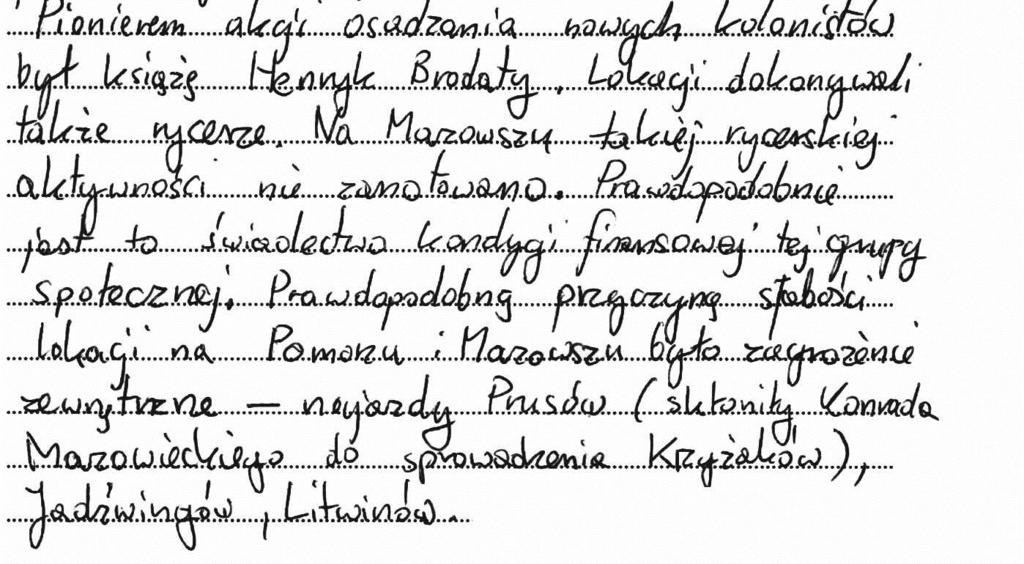 Pionierem akcji osadzania nowych kolonistów
był książę Henryk Brodaty. Lokacji dokonywali
także rycerze. Na Mazowszu takiej rycerskiej
aktywności nie zanotowano. Prawdopodobnie
jest to świadectwo kondycji finansowej tej grupy
społecznej. Prawdopodobną przyczyną słabości
lokacji na Pomorzu i Mazowszu było zagrożenie
zewnętrzne – najazdy Prusów (skłoniły Konrada
Mazowieckiego do sprowadzenia Krzyżaków),
Jadźwingów, Litwinów.